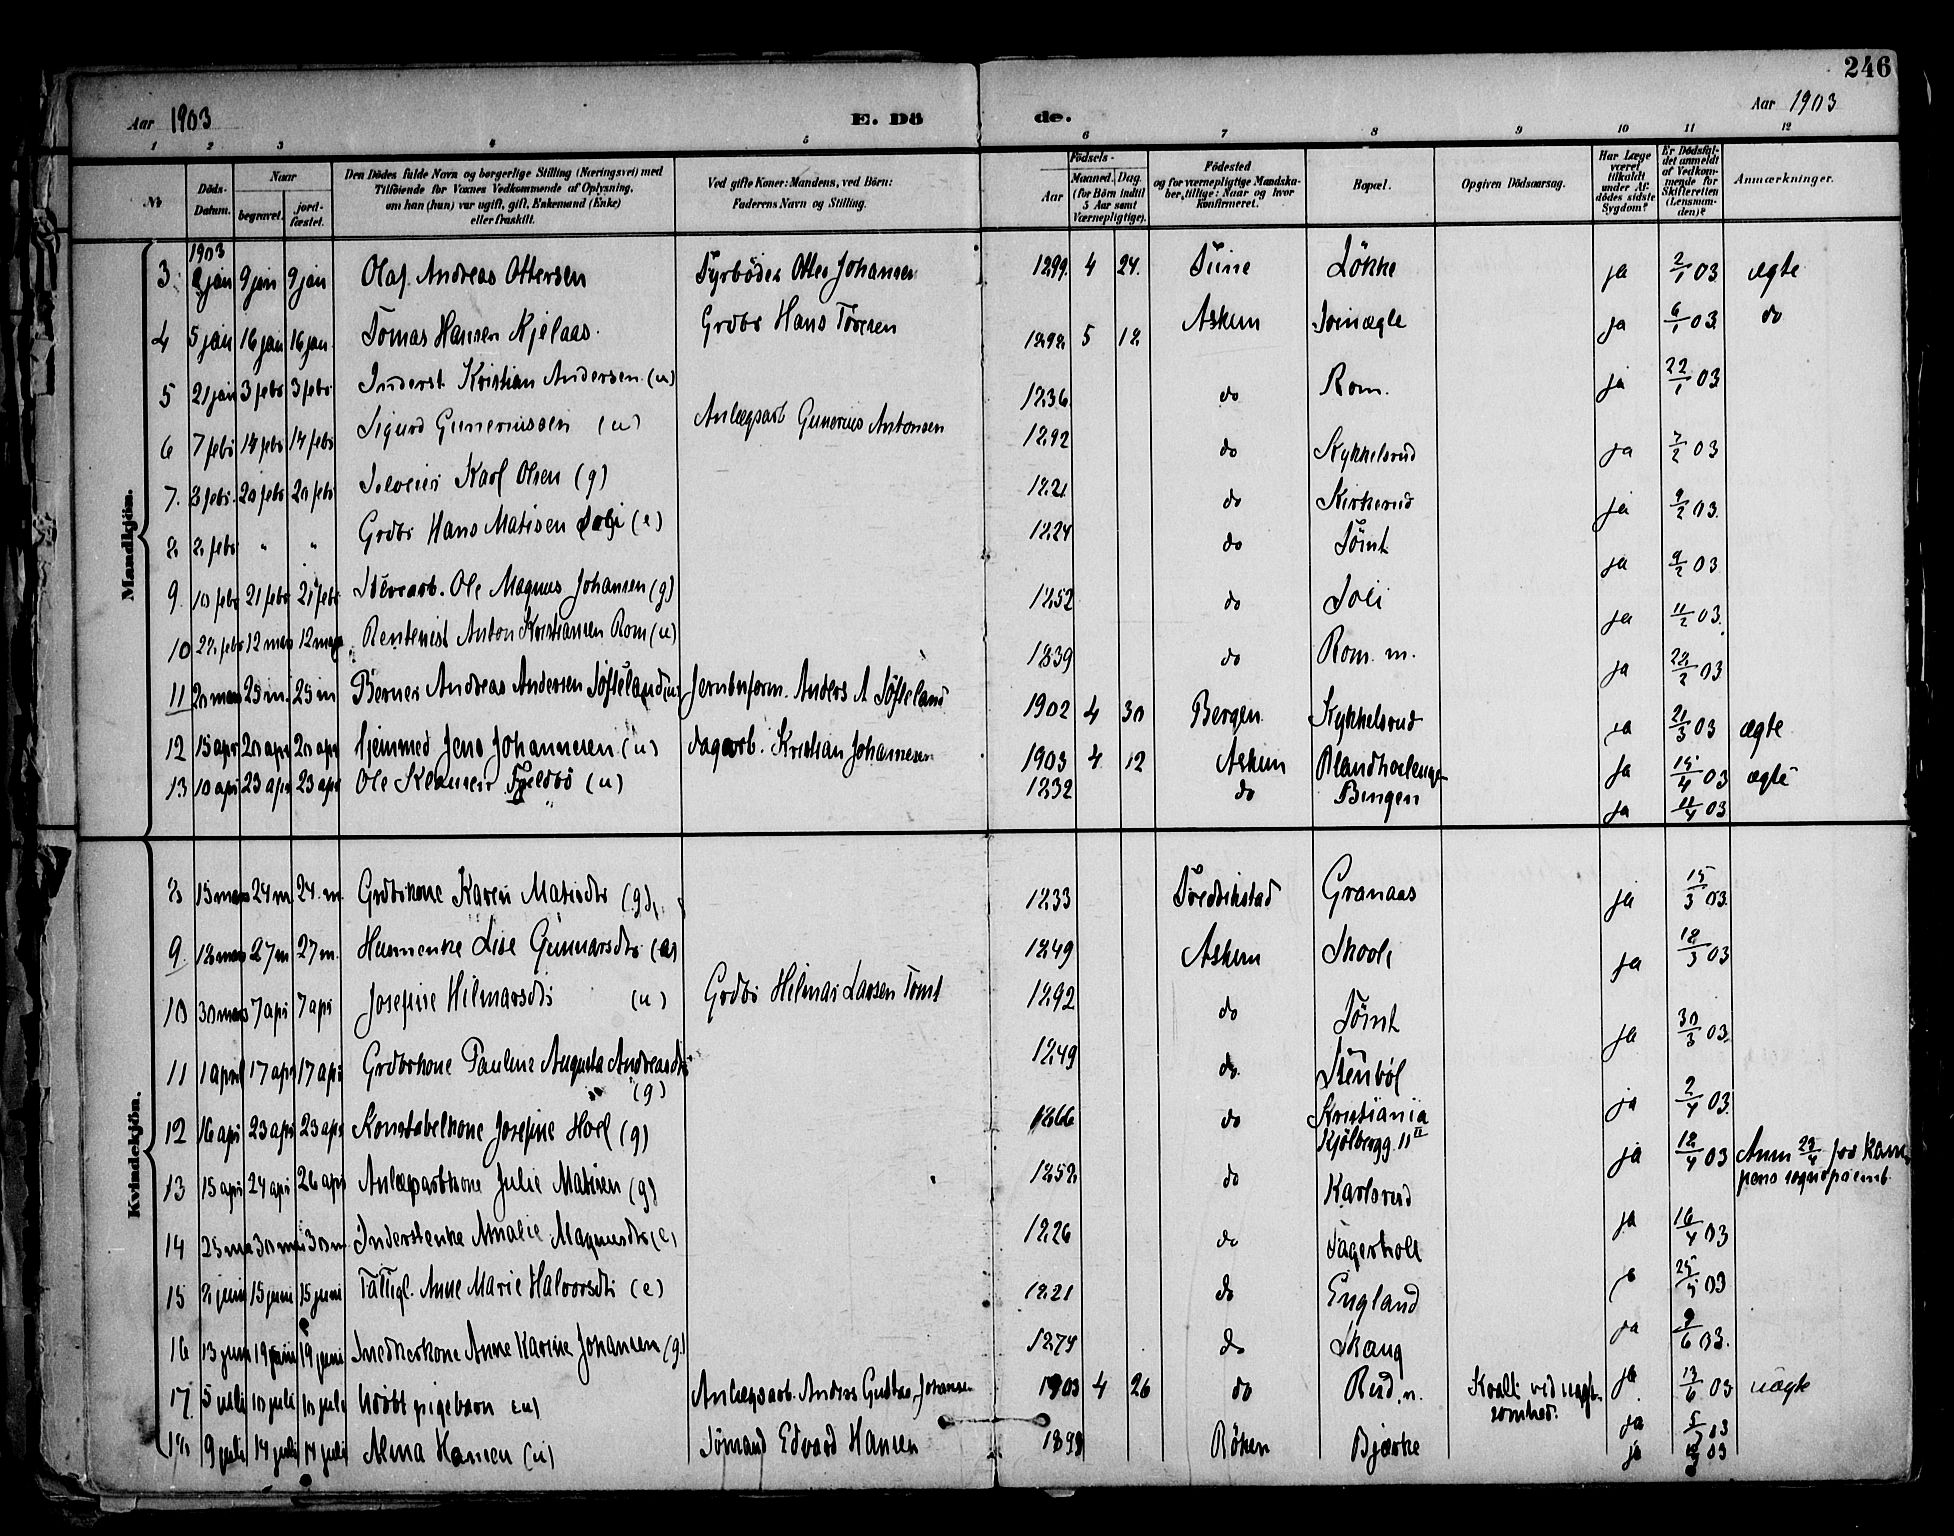 246
Aar 1903
E. Dö
de.
Aar 1903
1 2 3 4 5 6 7 8 9 10 11 12
№
Döds-Datum.
Naar
begravet.
jord-fæstet.
Den Dödes fulde Navn og borgerlige Stilling (Næringsvei) med
Tilföiende for Voxnes Vedkommende af Oplysning,
om han (hun) var ugift, gift, Enkemand (Enke)
eller fraskilt.
Ved gifte Koner: Mandens, ved Börn:
Faderens Navn og Stilling.
Födsels-
Aar
Maaned. Dag.
(for Börn indtil
5 Aar samt
Værnepligtige).
Födested
og for værnepligtige Mandska-
ber, tillige: Naar og hvor
konfirmeret.
Bopæl.
Opgiven Dödsaarsag.
Har Læge
været
tilkaldt
under Af-
dödes sidste
Sygdom?
Er Dödsfal-
det anmeldt
af Vedkom-
mende for
Skifteretten
(Lensman-
den)?
Anmærkninger.
Mandkjön.
1903
3 2 jan 9 jan 9 jan Olaf Andreas Ottersen Fyrböder Otter Johansen 1899 4 24. Tune Løkke ja 2/1 03 ægte
4 5 jan 16 jan 16 jan Tomas Hansen Kjelaas Grdbr Hans Toresen 1892 5 18 Askim ja 6/1 03 do
5 21 jan 3 febr 3 febr Inderst Kristian Andersen (u) 1836 do Rom. ja 22/1 03
6 7 febr 14 febr 14 febr Sigurd Guneriussen (u) Anlægsarb Gunerius Antonsen 1892 do Kykkelsrud ja 7/2 03
7. 8 febr. 20 febr 20 febr Karl Olsen (g) 1821 do Kirkerud ja 9/2 03.
8 8 febr " " Grdbr Hans Matisen Soli (e) 1824 do Tömt ja 9/2 03
9. 10 febr 21 febr 21 febr Ole Magnus Johansen (g) 1852 do Soli ja 11/2 03.
10 22 febr 12 mar 12 mar Rentenist Anton Kristiansen Rom (u) 1839 do Rom. m. ja 22/2 03
11 20 mars 25 m. 25 m Berner Andreas Andersen Söfteland (u) Anders A Söfteland 1902 4 30 Bergen Kykkelsrud ja 21/3 03 ægte
12 15 apr 20 apr 20 apr hjemmed Jens Johannesen (u) dagarb. Kristian Johannesen 1903 4 12 Askim ja 15/4 03 ægte
13 10 apr 23 apr 23 apr Ole (u) 1832 do Bingen ja 11/4 03
Kvindekjön.
8 15 mars 24 m 24. m Grdbrkone Karen Matisdtr (g) 1833 Fredrikstad Granaas ja 15/3 03.
9. 18 mars 27 m 27 m. Husmenke Lise Gunnarsdtr 1849 Askim ja 18/3 03
10 30 mars 7 apr 7 apr Josefine Hilmarsdtr (u) Grdbr Hilmar Larsen Tomt 1892 do Tömt ja 30/3 03.
11 1 april 17 apr 17 apr Grdbrkone Pauline Augusta Andreasdtr (g) 1849 do. Stenböl ja 2/4 03.
12 16 apr 23 apr 23 apr Konstabelkone Josefine Hoel (g) 1866 do Kristiania Kjölbergg. 11 II ja 18/4 03 Anm 23/4 for Kam-
pens sognepræmb.
13 15 apr 24 apr 26 apr Anlægsarbkone Julie Matisen (g) 1852 do Karlsrud ja 16/4 03
14 25 mai 30 mai 30 m. Inderstenke Amalie Magnusdtr (e) 1826 do Fagerholt ja 25/5 03
15 8 juni 15 juni 15 juni Fattigl. Anne Marie Halvorsdtr (e) 1821 do England ja 9/6 03.
16 13 juni 19 juni 19 juni Snedkerkone Anne Karine Johansen (g) 1874 do Skaug ja 13/6 03
17. 5 juli 10 juli 10 juli Udöbt pigebarn (u) Anlægsarb. Anders Gustav Johansen 1903 4 26 do Rud. n. Kvalt ved uagt-
somhed. ja 5/7 03 uægte
18 9 juli 14 juli 14 juli Alma Hansen (u) Sömand Edvard Hansen 1898 Röken Bjerke ja 03